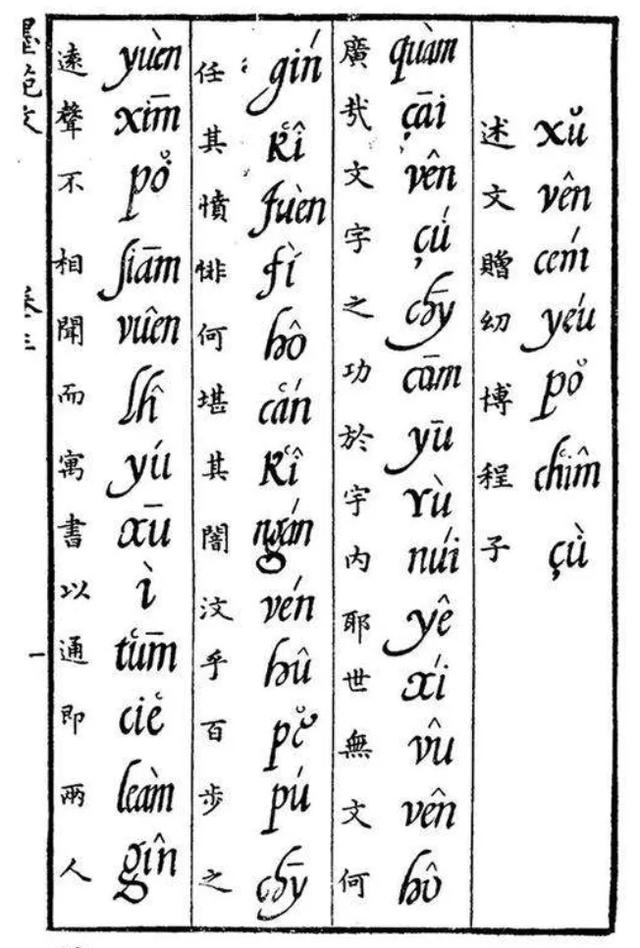 xǒ vên cém yéu pǒ chîm çù
述文贈幼博程子
quàm çāi vên çú chȳ cūm yū yù núi yê xí vû vên hô
廣哉文字之功於宇內耶世無文何
gín kî fuèn fì hô cán kî ngán vén hû pě pú chȳ
任其憤悱何堪其闇汶乎百步之
yuèn xīm pǒ siām vuên lhî yú xū ì tūm ciě leàm gîn
遠聲不相聞而寓書以通即兩人
卷三
一